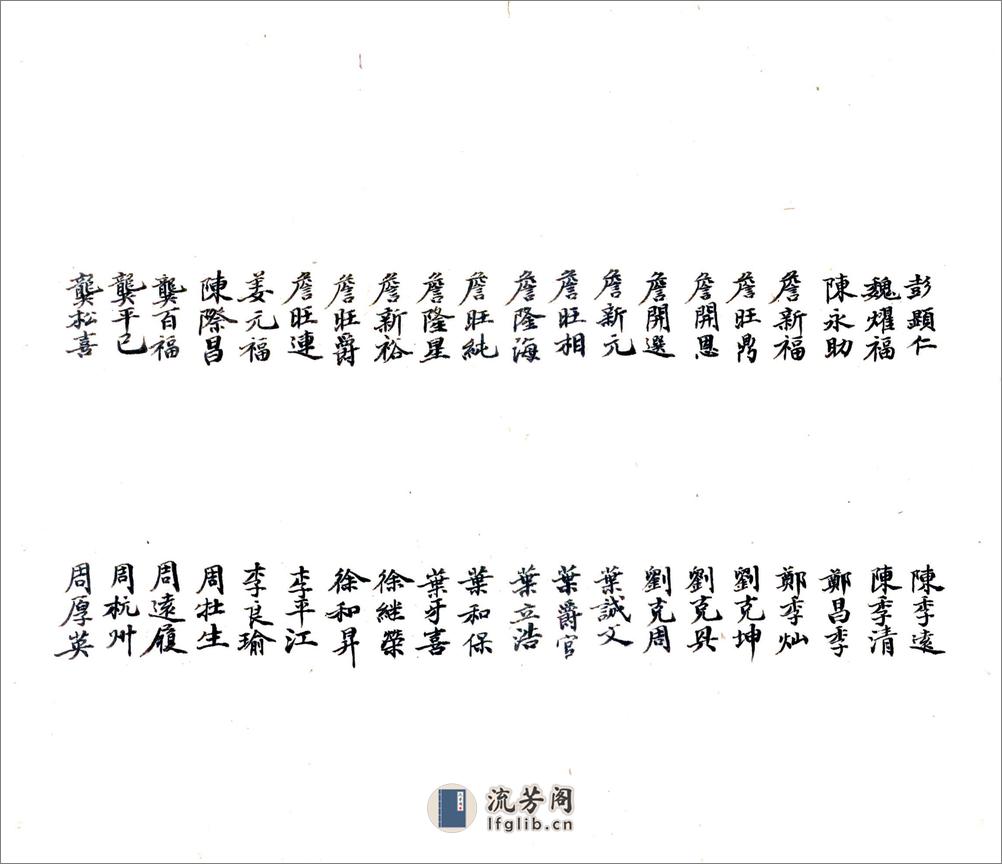 彭顕仁
魏燿福
陳永助
詹新福
詹旺鼎
詹開恩
詹開選
詹新元
詹旺相
詹隆海
詹旺純
詹隆星
詹新裕
詹旺爵
詹旺連
姜元福
陳際昌
龔百福
龔平已
龔松喜
陳季遠
陳季清
鄭昌季
鄭季灿
劉克坤
劉克具
劉克周
葉誠文
葉爵官
葉立浩
葉和保
葉牙喜
徐继榮
徐和昇
李平江
李良瑜
周壯生
周遠履
周杭州
周厚英
流芳阁
lfglib.cn